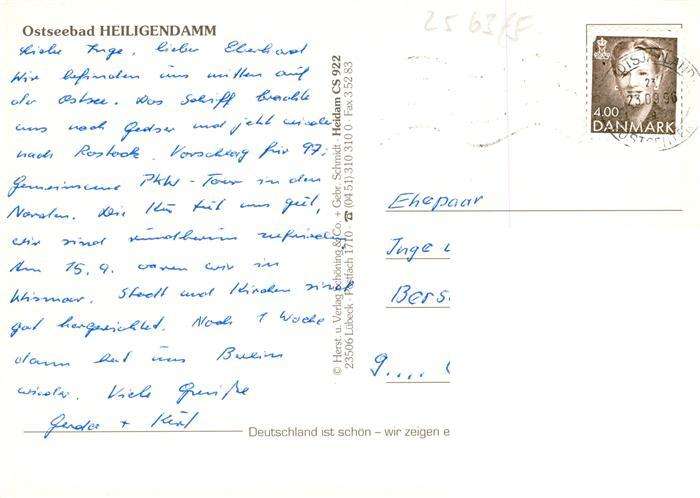 Ostseebad HEILIGENDAMM
Liebe Inge, lieber Eberhard
Wir befinden uns mitten auf
der Ostsee. Das Schiff brachte
uns nach Gedser und jetzt wieder
nach Rostock. Vorschlag für 97:
Gemeinsame PKW-Tour in den
Norden. Die Kur tut uns gut,
wir sind rundherum zufrieden.
Am 15.9. waren wir in
Wismar. Stadt und Kirchen sind
gut hergerichtet. Noch 1 Woche
dann hat uns Berlin
wieder. Viele Grüße
Gerda + Kurt
© Herst. u. Verlag Schöning & Co. + Gebr. Schmidt · Heidam CS 922
23506 Lübeck · Postfach 1710 · ☎ (0451) 310 310 0 · Fax 3 52 83
25 63
4.00
DANMARK
23.09.96
Ehepaar
Inge
Bers
9....
Deutschland ist schön – wir zeigen e